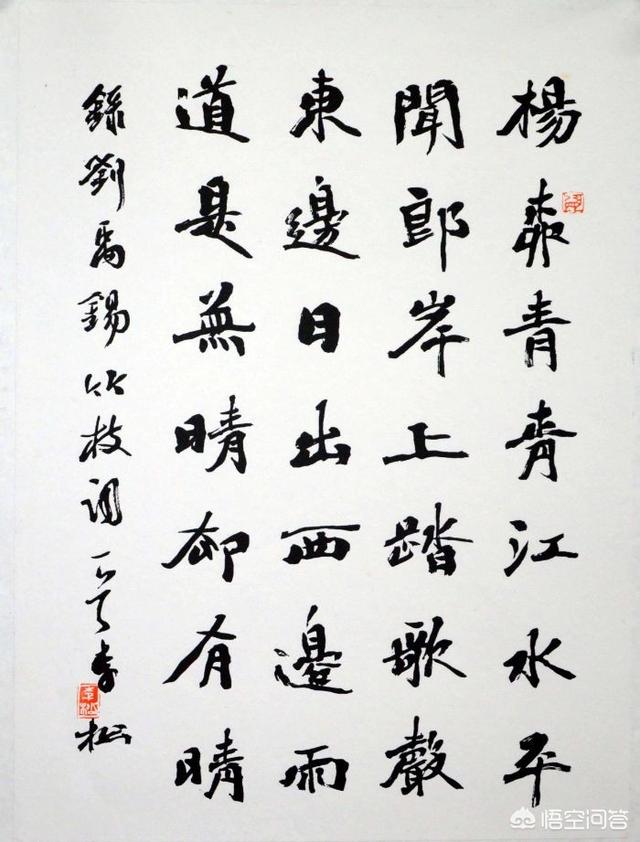 楊柳青青江水平
聞郎岸上踏歌聲
東邊日出西邊雨
道是無晴却有晴
錄劉禹錫竹枝詞 李松
李松
悟空问答